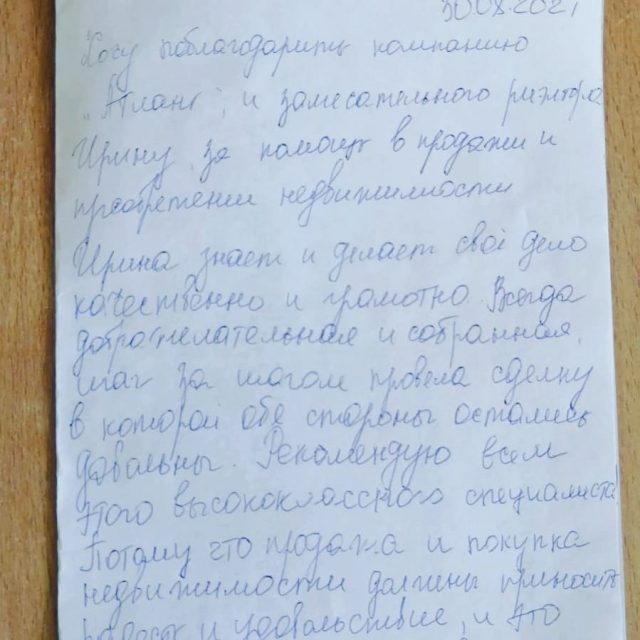 30.08.2021
Хочу поблагодарить компанию
„Атлант", и замесательного риэлтора
Ирину за помощь в продажи и
преобретении недвижимости
Ирина знает и делает своё дело
качественно и грамотно. Всегда
доброжелательная и собранная,
шаг за шагом провела сделку
в которой обе стороны остались
довольны. Рекомендую всем
этого высококлассного специалиста
Потому что продажа и покупка
недвижимости должны приносить
радость и удовольствие, и это